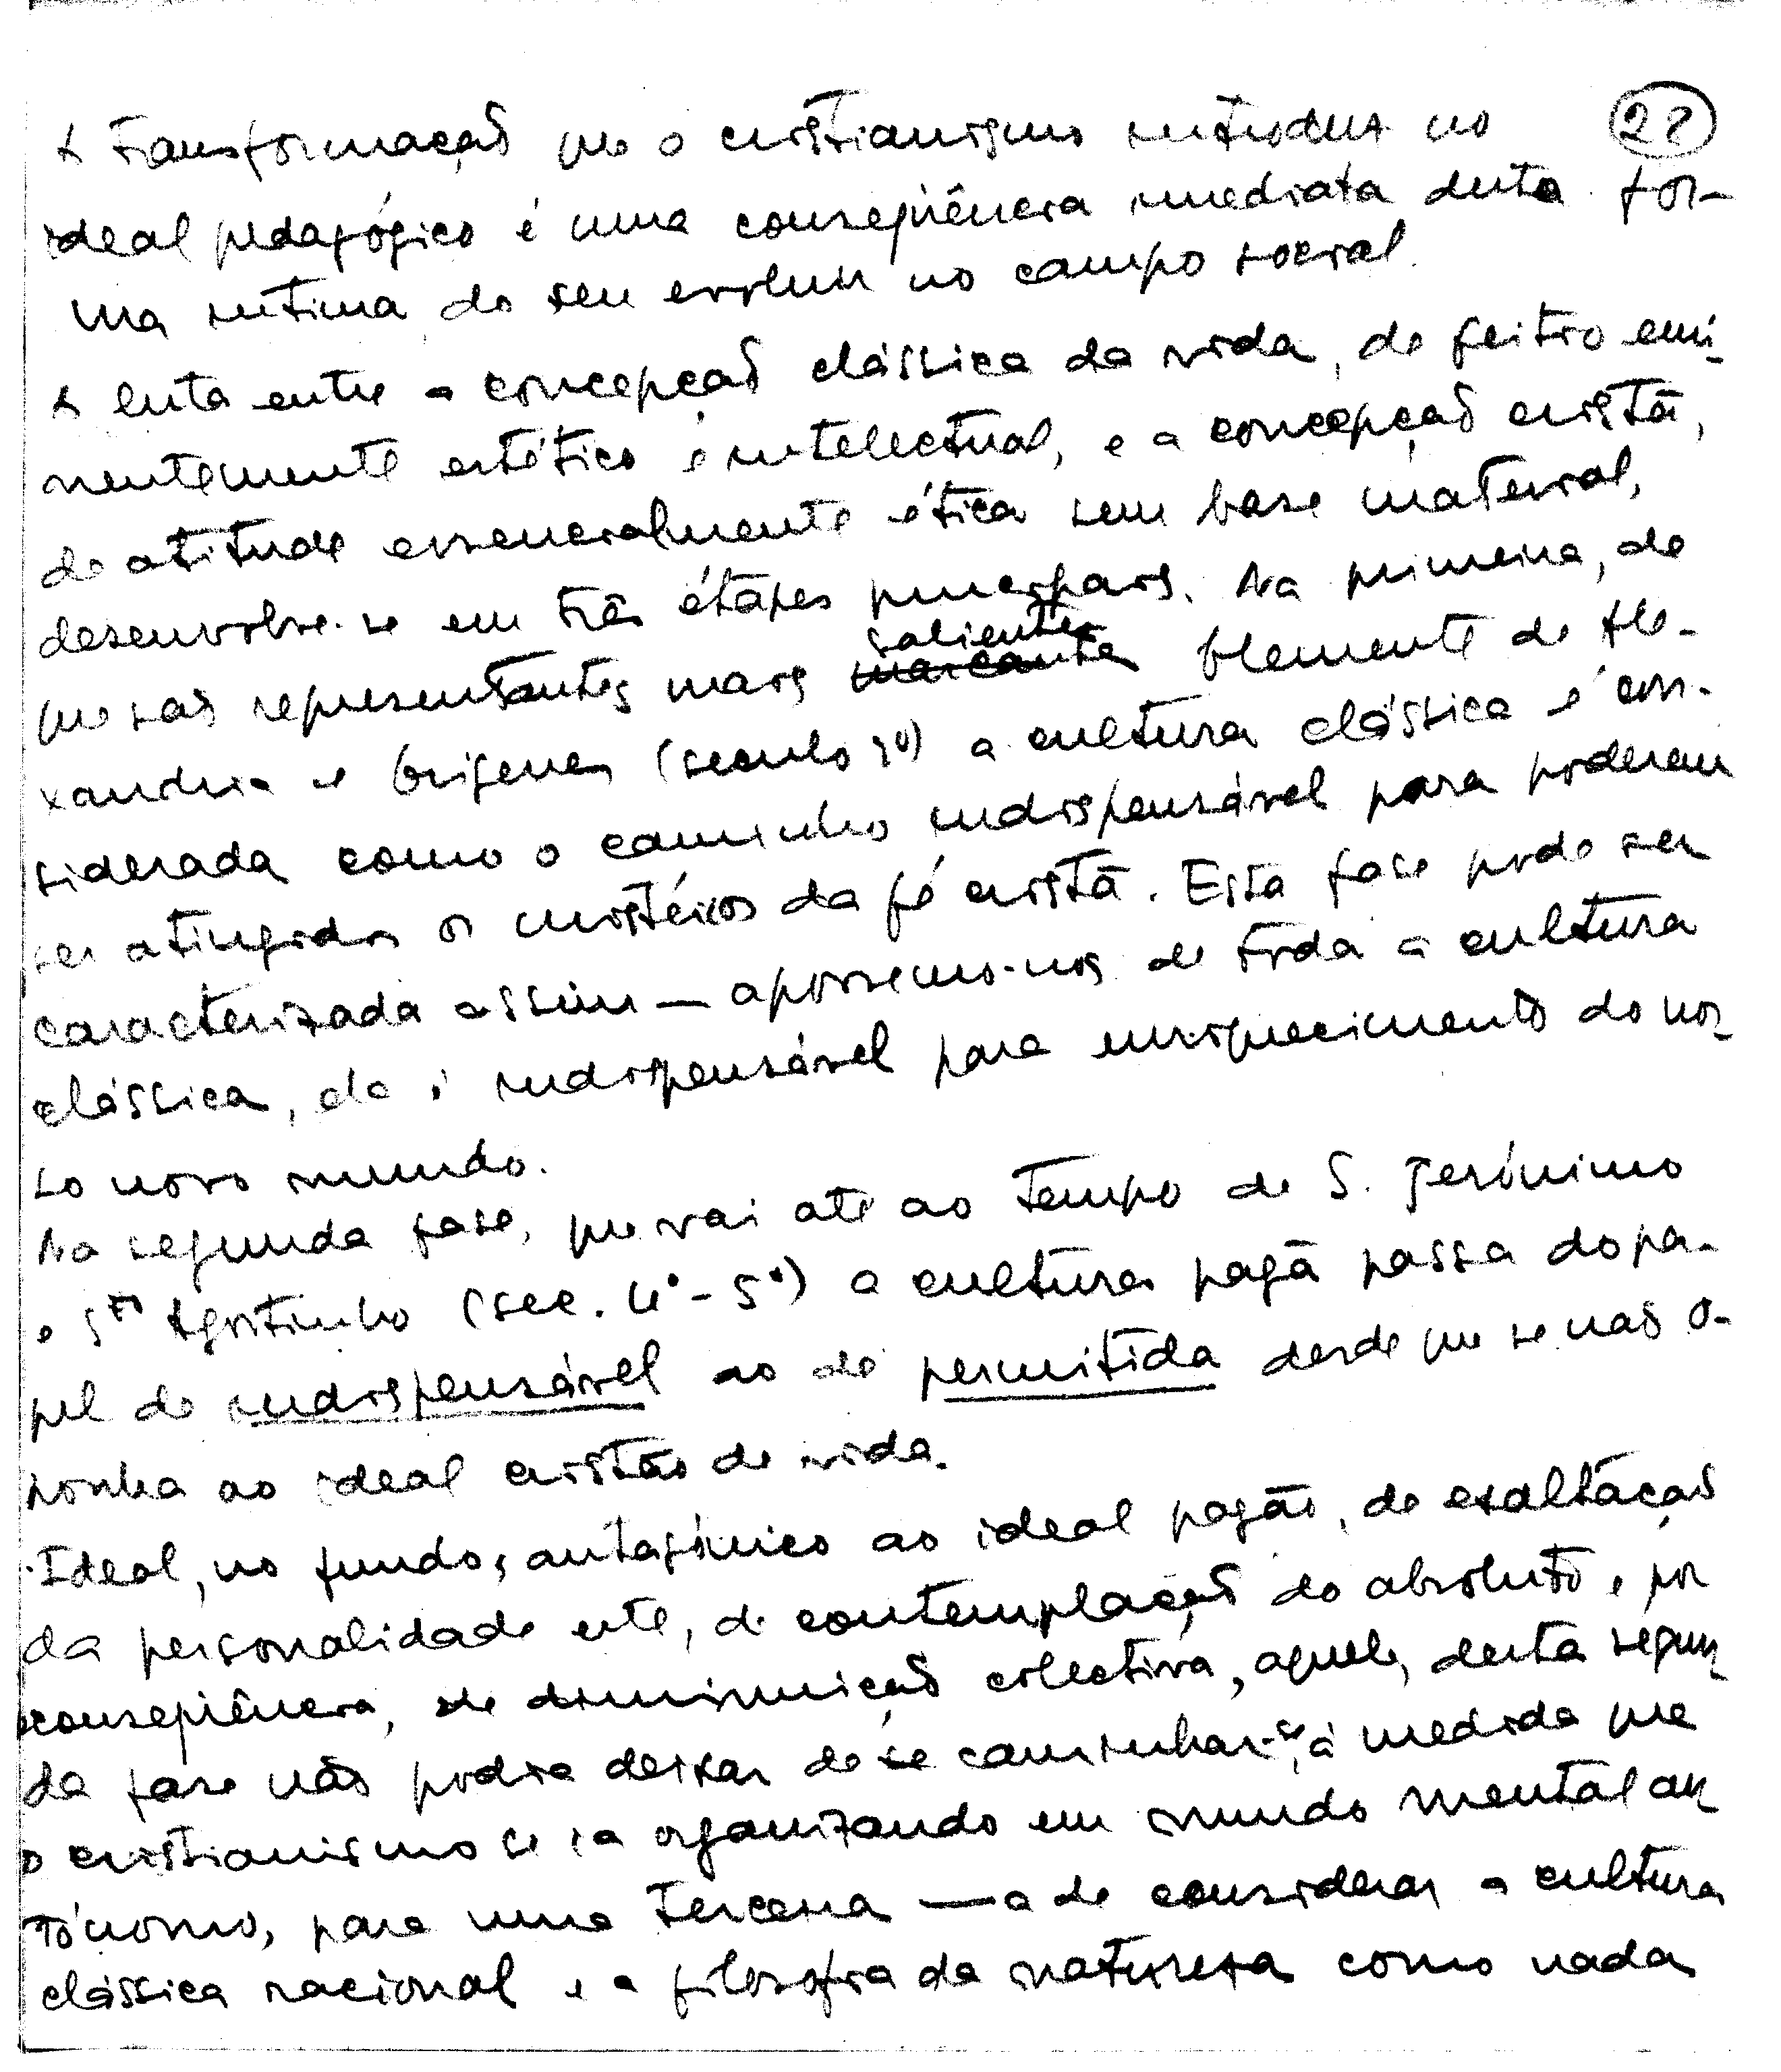 A transformação que o cristianismo introduz no 28
ideal pedagógico é uma conseqüência imediata desta for-
ma íntima do seu evoluir no campo social.
A luta entre a concepção clássica da vida, de feitio emi-
nentemente estético e intelectual, e a concepção cristã,
de atitude essencialmente ética sem base material,
desenvolve-se em três étapes principais. Na primeira, de
que são representantes mais marcantes salientes Clemente de Ale-
xandria e Origenes (seculo 3º) a cultura clássica é con-
siderada como o caminho indispensável para poderem
ser atingidos os mistérios da fé cristã. Esta fase pode ser
caracterizada assim — apossemo-nos de toda a cultura
clássica, ela é indispensável para enriquecimento do nos-
so novo mundo.
Na segunda fase, que vai até ao tempo de S. Jerónimo
e Sto Agostinho (sec. 4º - 5º) a cultura pagã passa do pa-
pel de indispensável ao de permitida desde que se não o-
ponha ao ideal cristão de vida.
Ideal, no fundo, antagónico ao ideal pagão, de exaltação
da personalidade este, de contemplação do absoluto e, por
conseqüência, de diminuição colectiva, aquele, desta segun-
da fase não podia deixar de se caminhar-se, à medida que
o cristianismo se ia organizando em mundo mental au-
tónomo, para uma terceira — a de considerar a cultura
clássica racional e a filosofia da natureza como nada